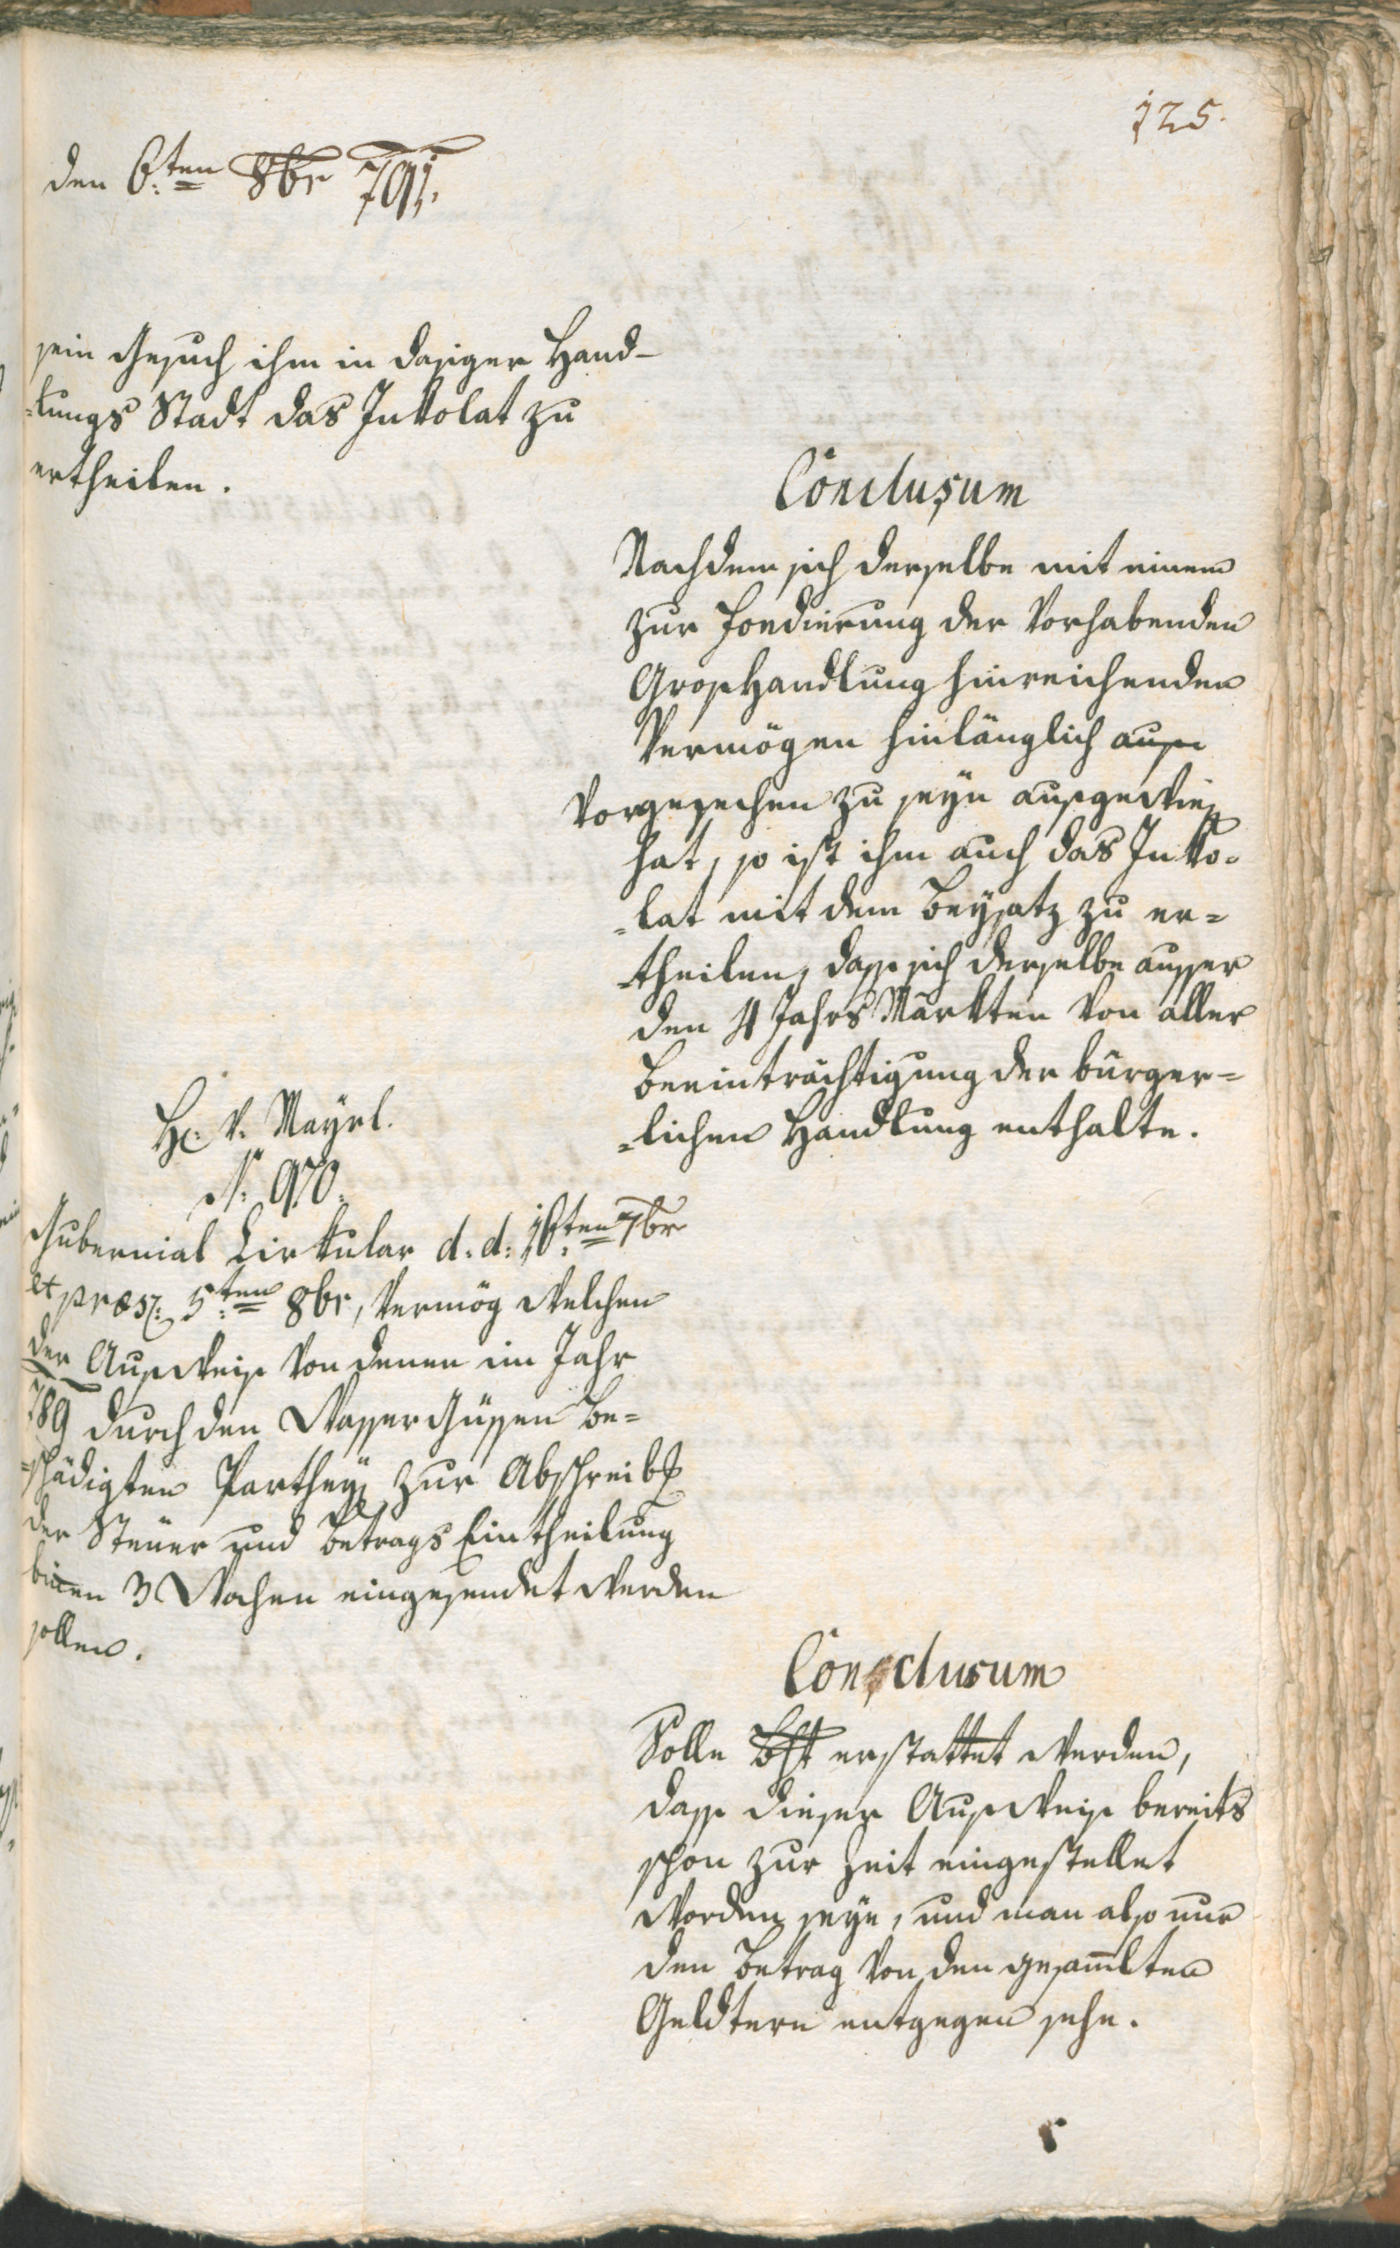 125.
den 6:ten 8br 791.
sein Gesuch ihm in dasiger Hand-
-lungs Stadt das Inkolat zu
ertheilen.
Conclusum
Nachdem sich derselbe mit einem
zur Fondierung der vorhabenden
Grosshandlung hinreichenden
Vermögen hinlänglich ausge
vorgesechen zu seyn ausgewies
hat, so ist ihm auch das Inko-
-lat mit dem Beysatz zu er=
-theilen, dass sich derselbe ausser
den 4 Jahrs Märkten von aller
Beeinträchtigung der bürger=
-lichen Handlung enthalte.
H: v. Mayrl.
N: 970.
Gubernial Cirkular d: d: 16:ten 7br
et præs: 5:ten 8br, vermög welchen
der Ausweis von denen im Jahr
789 durch den Wassergüssen be=
=schädigten Parthey zur Abschreib
der Steuer und Betrags Eintheilung
binen 3 Wochen eingesendet werden
sollen.
Consclusum
Solle Bht erstattet werden,
dass dieser Ausweis bereits
schon zur Zeit eingestellet
worden seye, und man also nur
den Betrag von den gesamelten
Geldtern entgegen sehe.